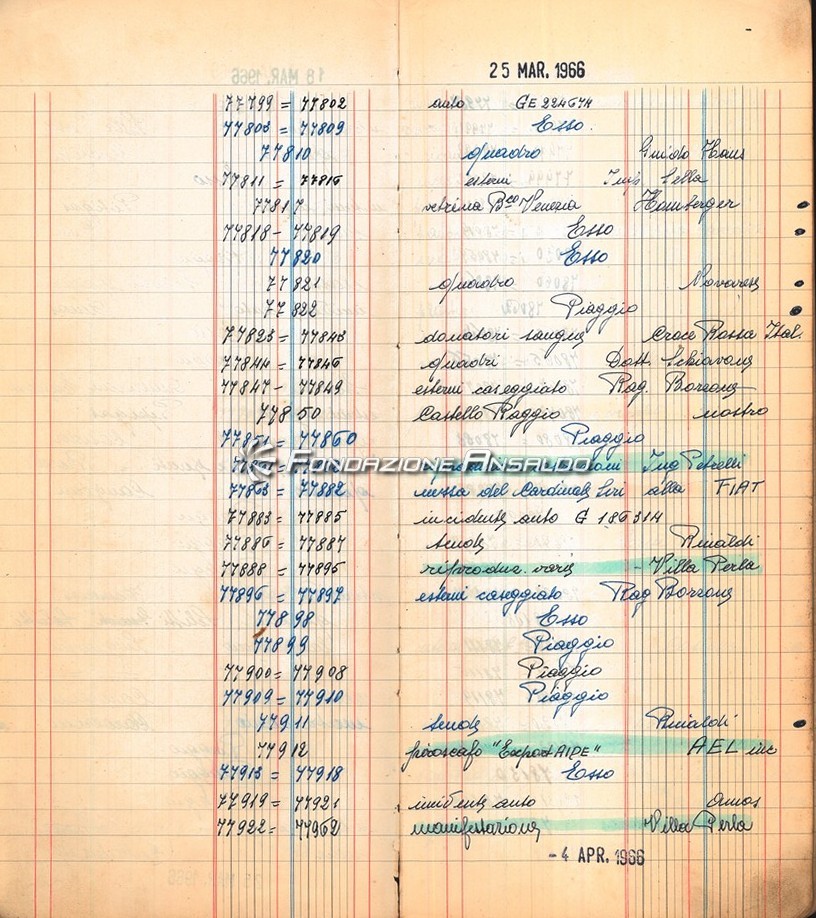 25 MAR. 1966
77799 = 77802 auto GE 224674
77803 = 77809 Esso.
77810 quadro Guido Haus
77811 = 77816 esterni Lella
77817 vetrina Bco Venezia Homberger
77818 - 77819 Esso
77820 Esso
77821 quadro Novarese
77822 Piaggio
77823 = 77843 donatori sangue Croce Rossa Ital.
77844 = 77846 quadri Dott. Schiavone
77847 - 77849 esterni caseggiato Rag. Borzone
77850 Castello Raggio nostro
77851 = 77860 Piaggio
FONDAZIONE ANSALDO
Ing Petrelli
77863 = 77882 messa del Cardinale Siri alla FIAT
77883 = 77885 incidente auto G 186314
77886 = 77887 tende Rinaldi
77888 = 77895 riproduz. varie - Villa Perla
77896 = 77897 esterni caseggiato Rag Borzone
77898 Esso
77899 Piaggio
77900 = 77908 Piaggio
77909 = 77910 Piaggio
77911 tende Rinaldi
77912 piroscafo "Export AIDE" AEL inc
77913 = 77918 Esso
77919 = 77921 incidente auto Amos
77922 = 77962 manifestazione Villa Perla
- 4 APR. 1966